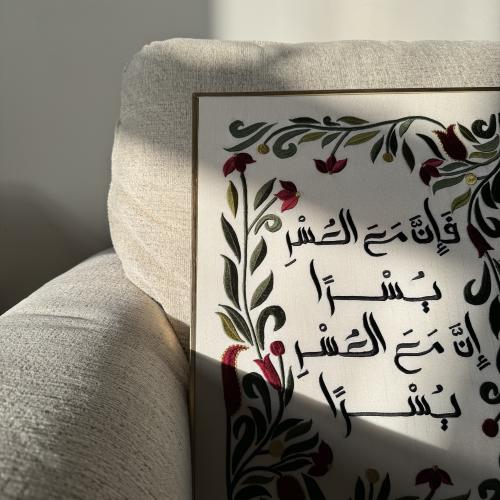 فَإِنَّ مَعَ الْعُسْرِ
يُسْرًا
إِنَّ مَعَ الْعُسْرِ
يُسْرًا